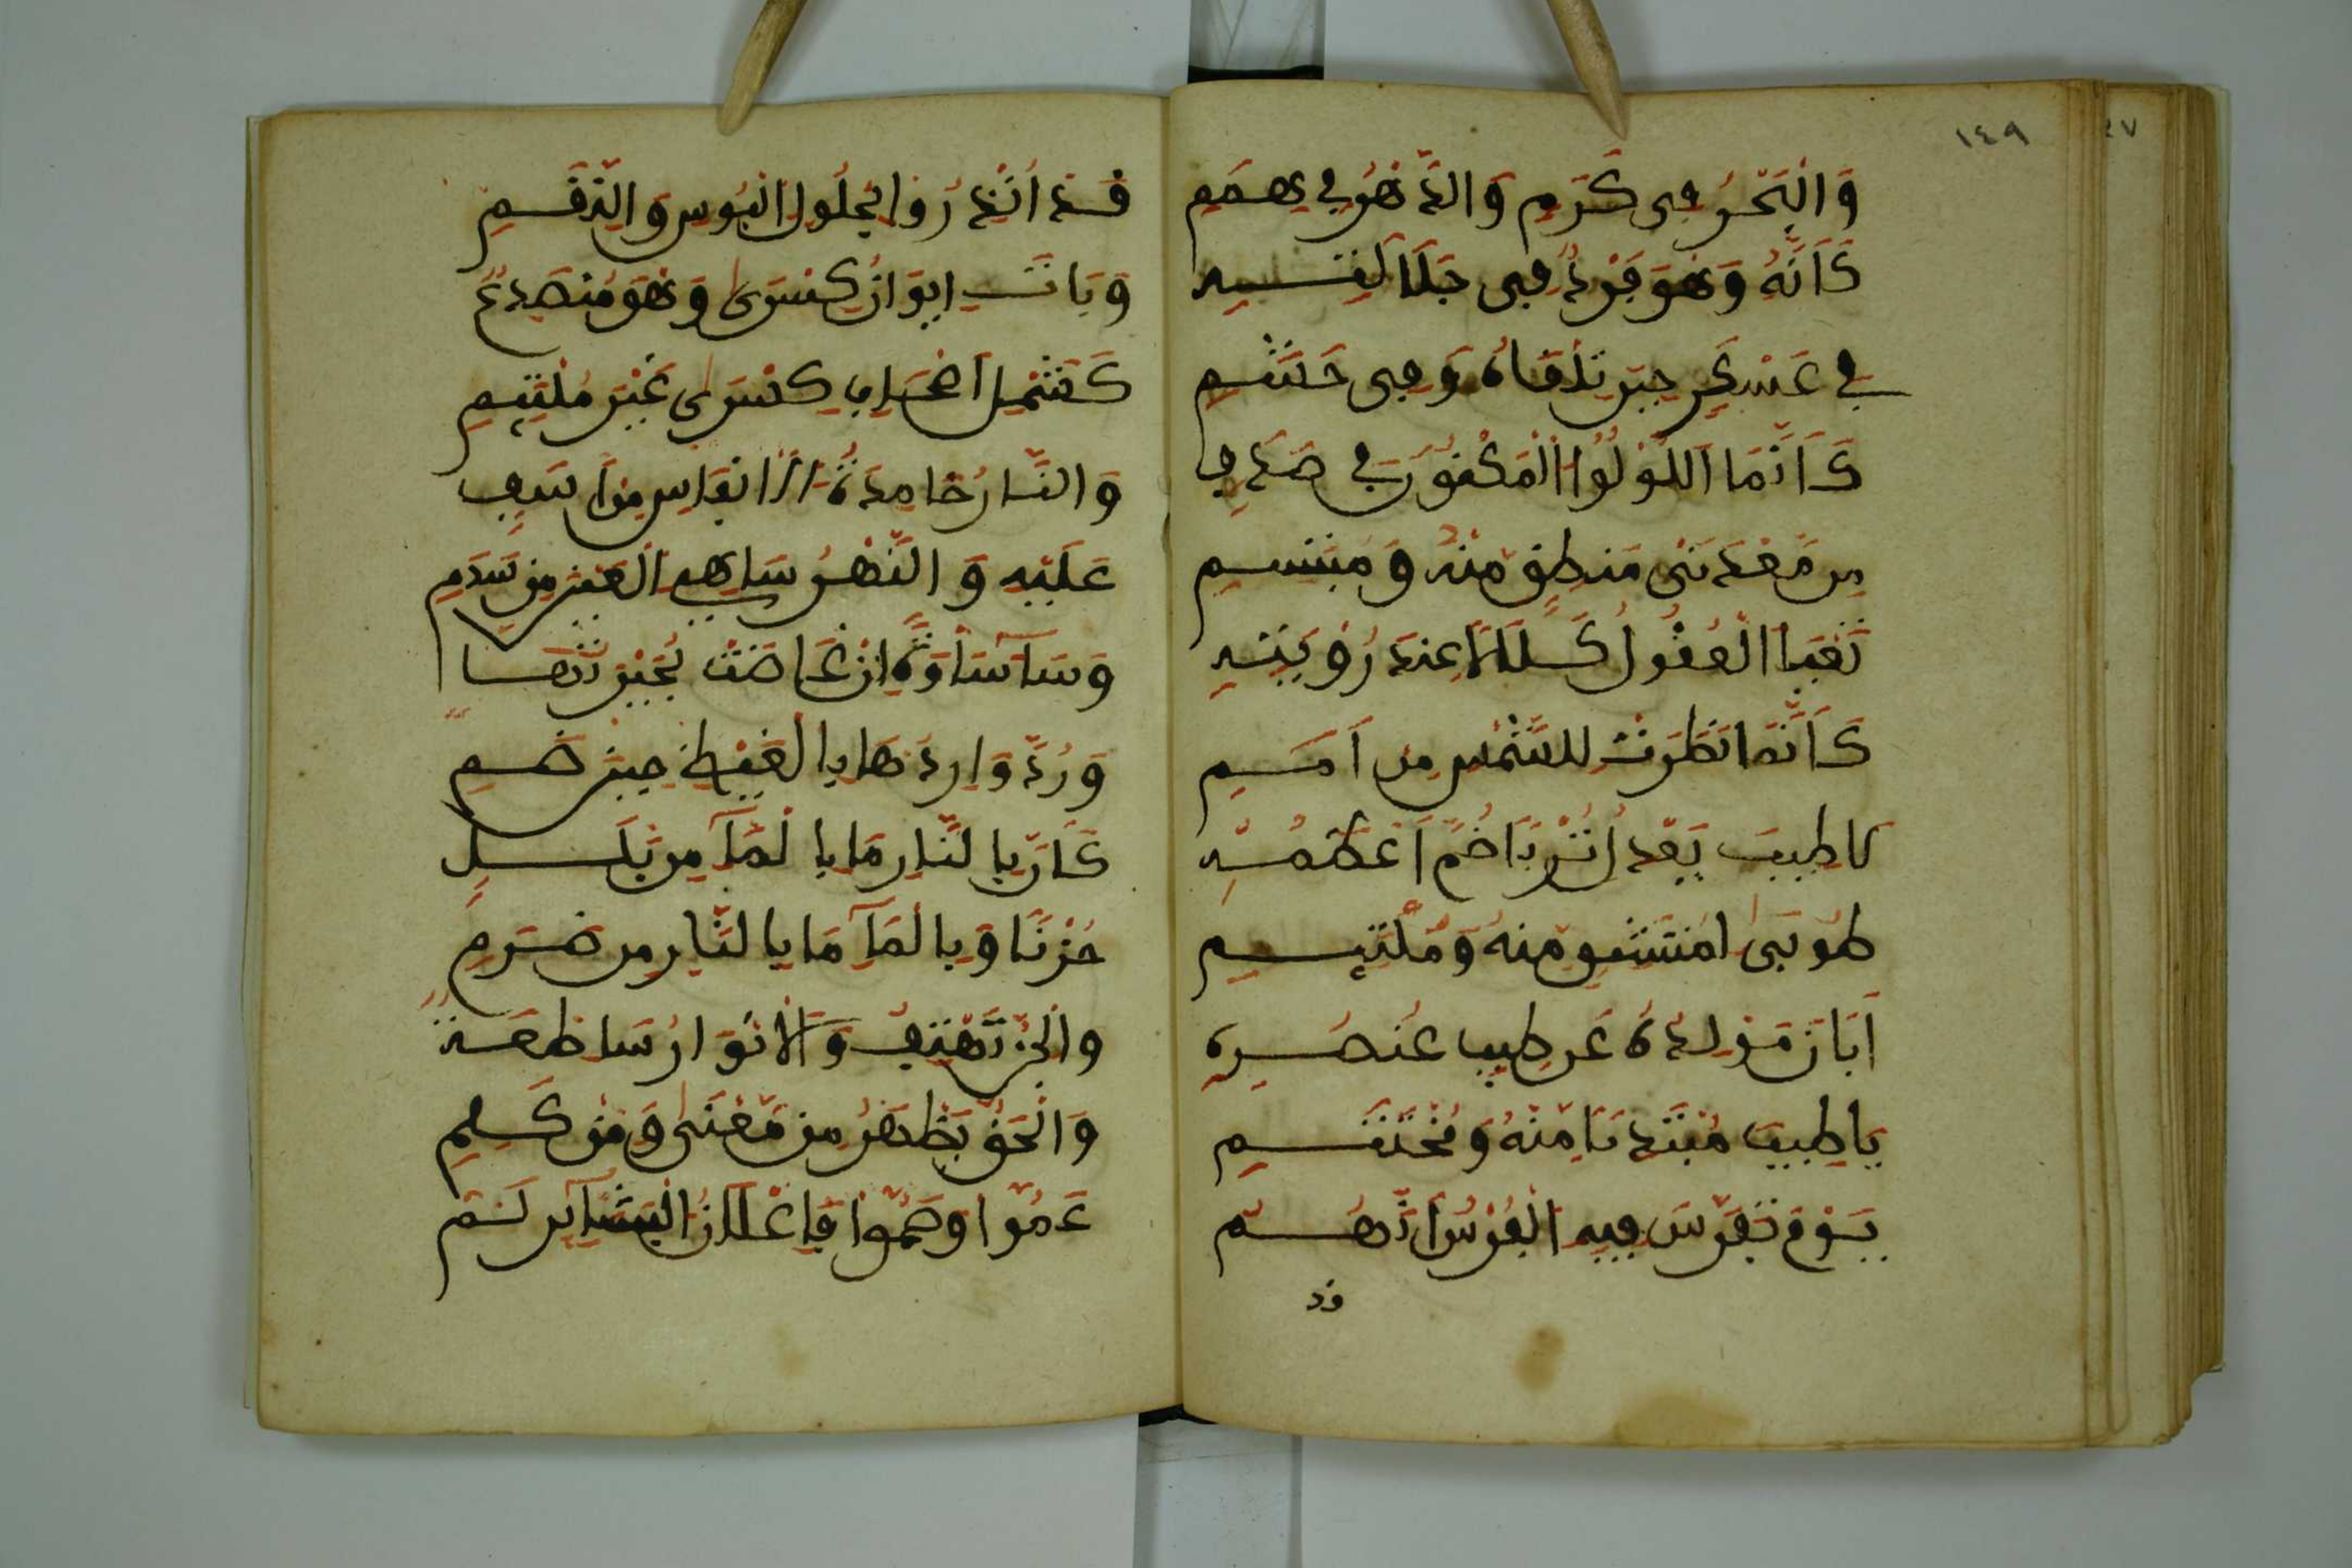 ١٤٩
٤٧
وَالْبَحْرُ فِى كَرَمٍ وَالدَّهْرُ فِي هِمَمِ
كَأَنَّهُ وَهُوَ فَرْدٌ فِى جَلَالَتِهِ
فِي عَسْكَرٍ حِينَ تَلْقَاهُ وَفِى حَشَمِ
كَأَنَّمَا اللُّوْلُوُا الْمَكْنُونُ فِي صَدَفٍ
مِن مَعْدَنَىْ مَنطِقٍ مِنْهُ وَمُبْتَسِمِ
تَعْيَا الْعُقُولُ كَلَالًا عِندَ رُؤْيَتِهِ
كَأَنَّمَا نَظَرَتْ لِلشَّمْسِ مِن أَمَمِ
لَا طِيبَ يَعْدِلُ تُرْبًا ضُمَّ أَعْظُمُهُ
طُوبَى لِمُنتَشِقٍ مِنهُ وَمُلْتَثِمِ
أَبَانَ مَوْلِدُهُ عَن طِيبِ عُنصُرِهِ
يَا طِيبَ مُبْتَدَإٍ مِنْهُ وَمُخْتَتَمِ
يَوْمٌ تَفَرَّسَ فِيهِ الْفُرْسُ أَنَّهُمُ
قد
قَد أُنْذِرُوا بِحُلُولِ الْبُوسِ وَالنِّقَمِ
وَبَاتَ إِيوَانُ كِسْرَى وَهُوَ مُنصَدِعٌ
كَشَمْلِ أَصْحَابِ كِسْرَى غَيْرَ مُلْتَئِمِ
وَالنَّارُ خَامِدَةُ الْأَنفَاسِ مِنْ أَسَفٍ
عَلَيْهِ وَالنَّهْرُ سَاهِي الْعَيْنِ مِن سَدَمِ
وَسَا سَاوَةَ إِنْ غَاضَتْ بُحَيْرَتُهَا
وَرُدَّ وَارِدُهَا بِالْغَيْظِ حِينَ ظَمِ
كَأَنَّ بِالنَّارِ مَا بِالْمَآءِ مِن بَلَلٍ
حُزْنًا وَبِالْمَآءِ مَا بِالنَّارِ مِن ضَرَمِ
وَالْجِنُّ تَهْتِفُ وَالْأَنْوَارُ سَاطِعَةٌ
وَالْحَقُّ يَظْهَرُ مِن مَعْنًى وَمِنْ كَلِمِ
عَمُوا وَصَمُّوا فَإِعْلَانُ الْبَشَآئِرِ لَمْ